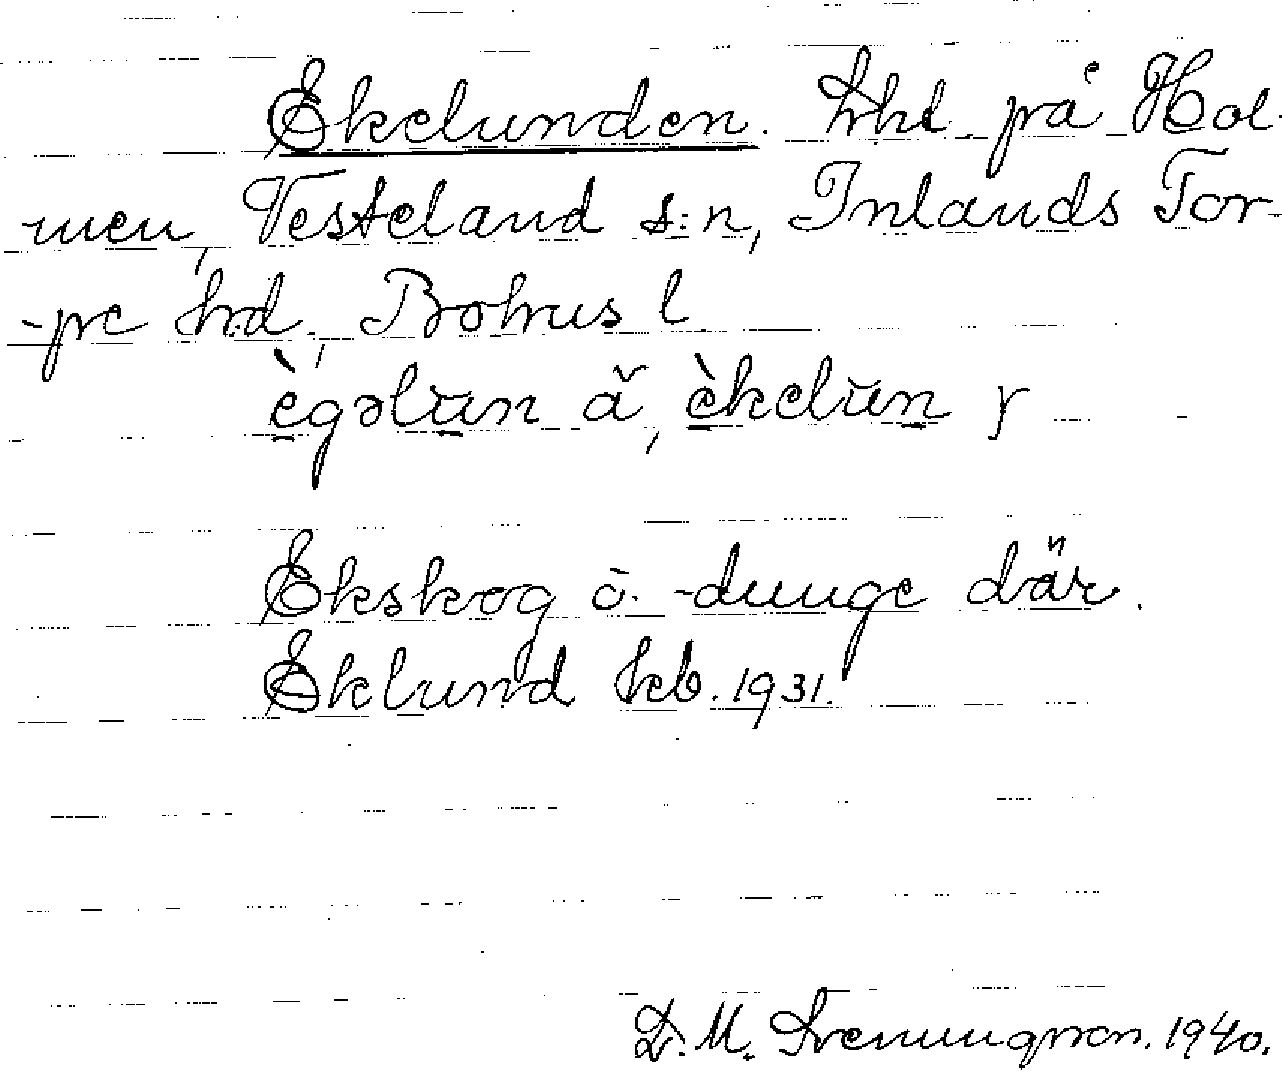 Ekelunden. Lht på Hol-
men, Vesteland s:n, Inlands Tor-
-pe hd, Bohus l.
ègəlun ă, èkelun y
Ekskog o. -dunge där.
Eklund kb. 1931.
D. M. Svenungsson. 1940.